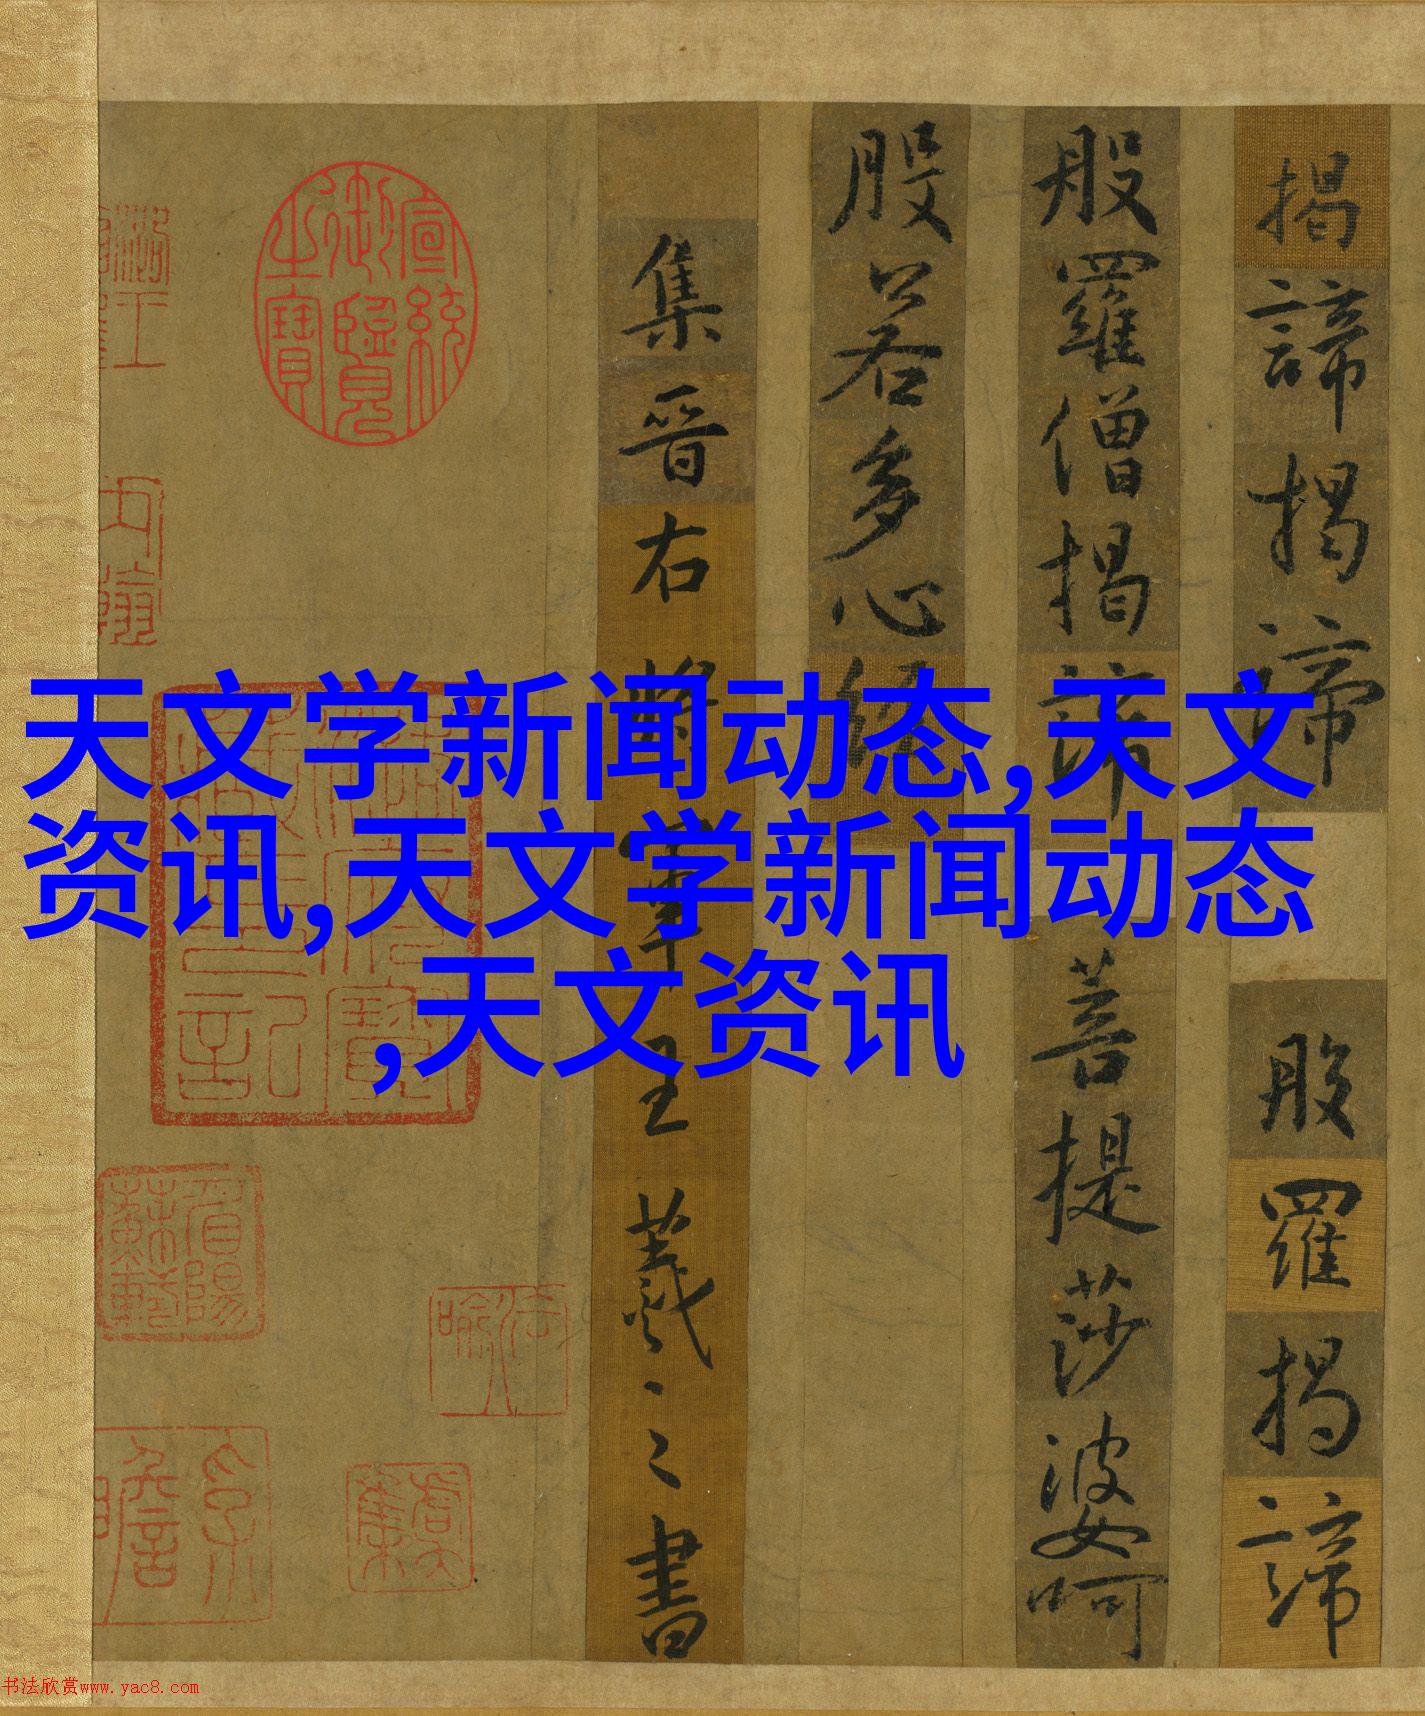 揭諦揭諦般羅揭諦
般羅僧揭諦菩提莎婆呵
般若多心經
集晉右將軍王羲之書
宣統御覽之寶
天文学新闻动态,天文
资讯,天文学新闻动态
,天文资讯
书法欣赏www.yac8.com